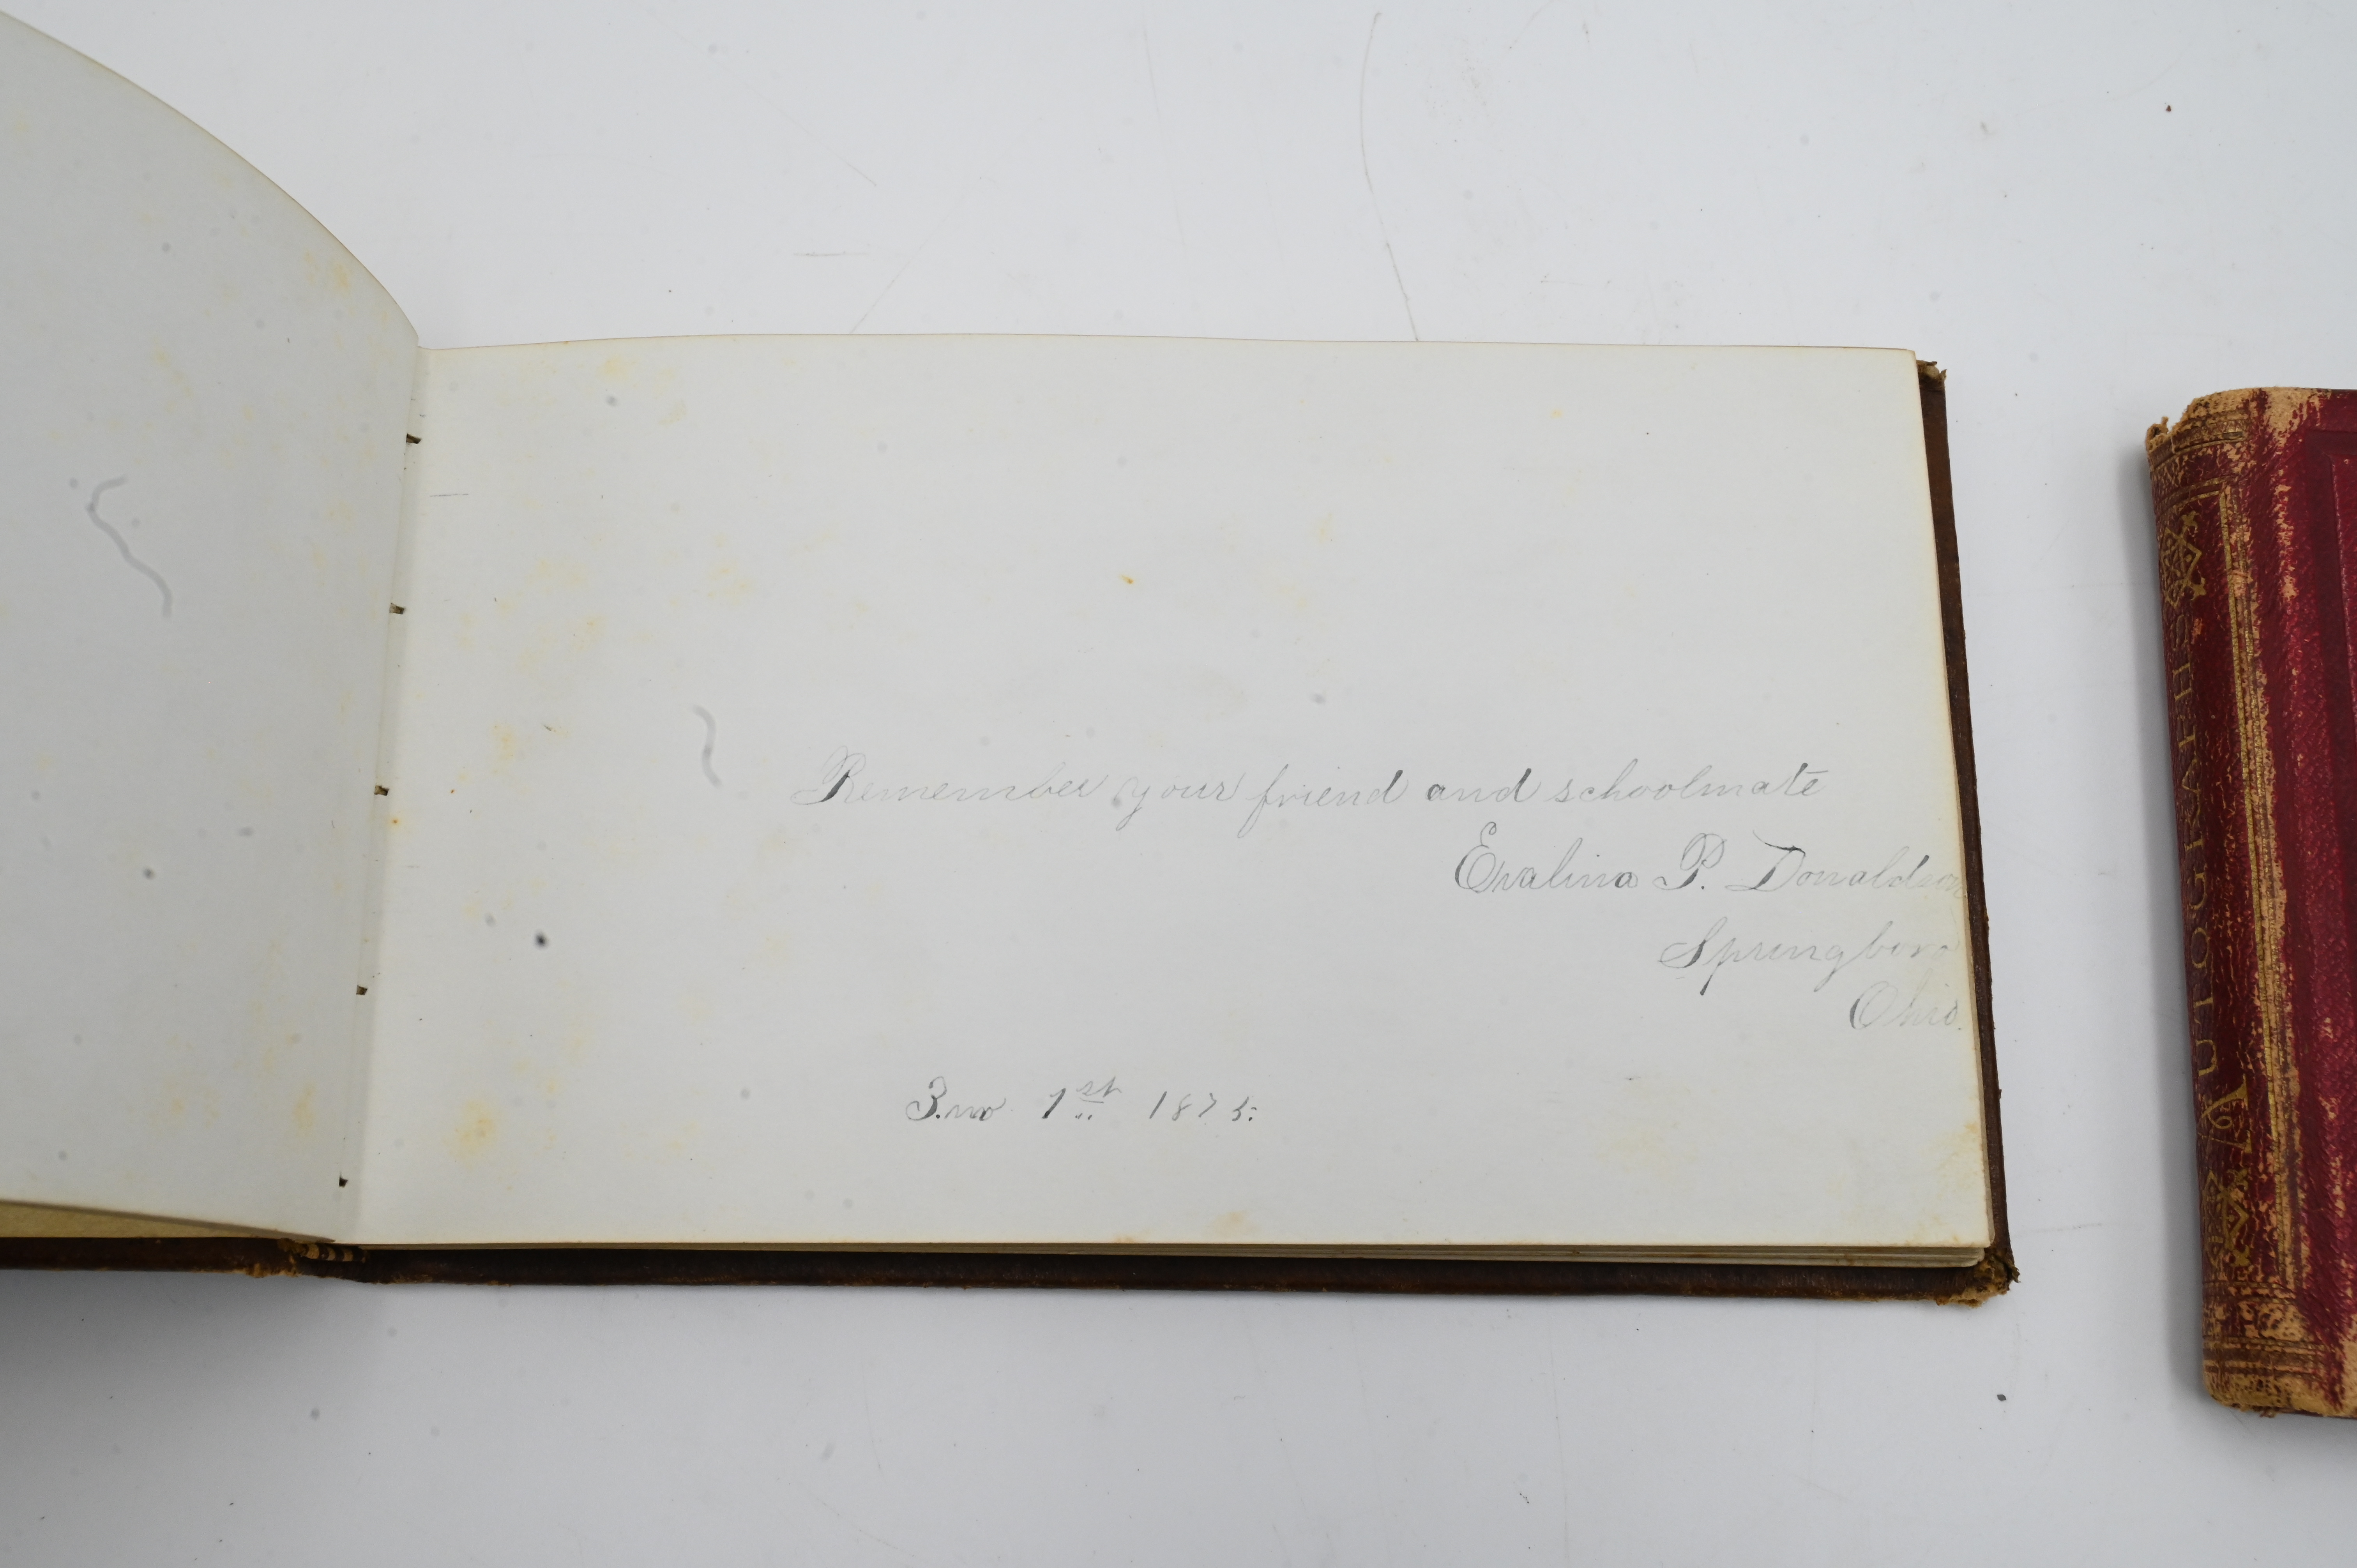 Remember your friend and schoolmate
Evalina P. Donaldson
Springboro
Ohio.
3.mo 1st 1875.
AUTOGRAPHS